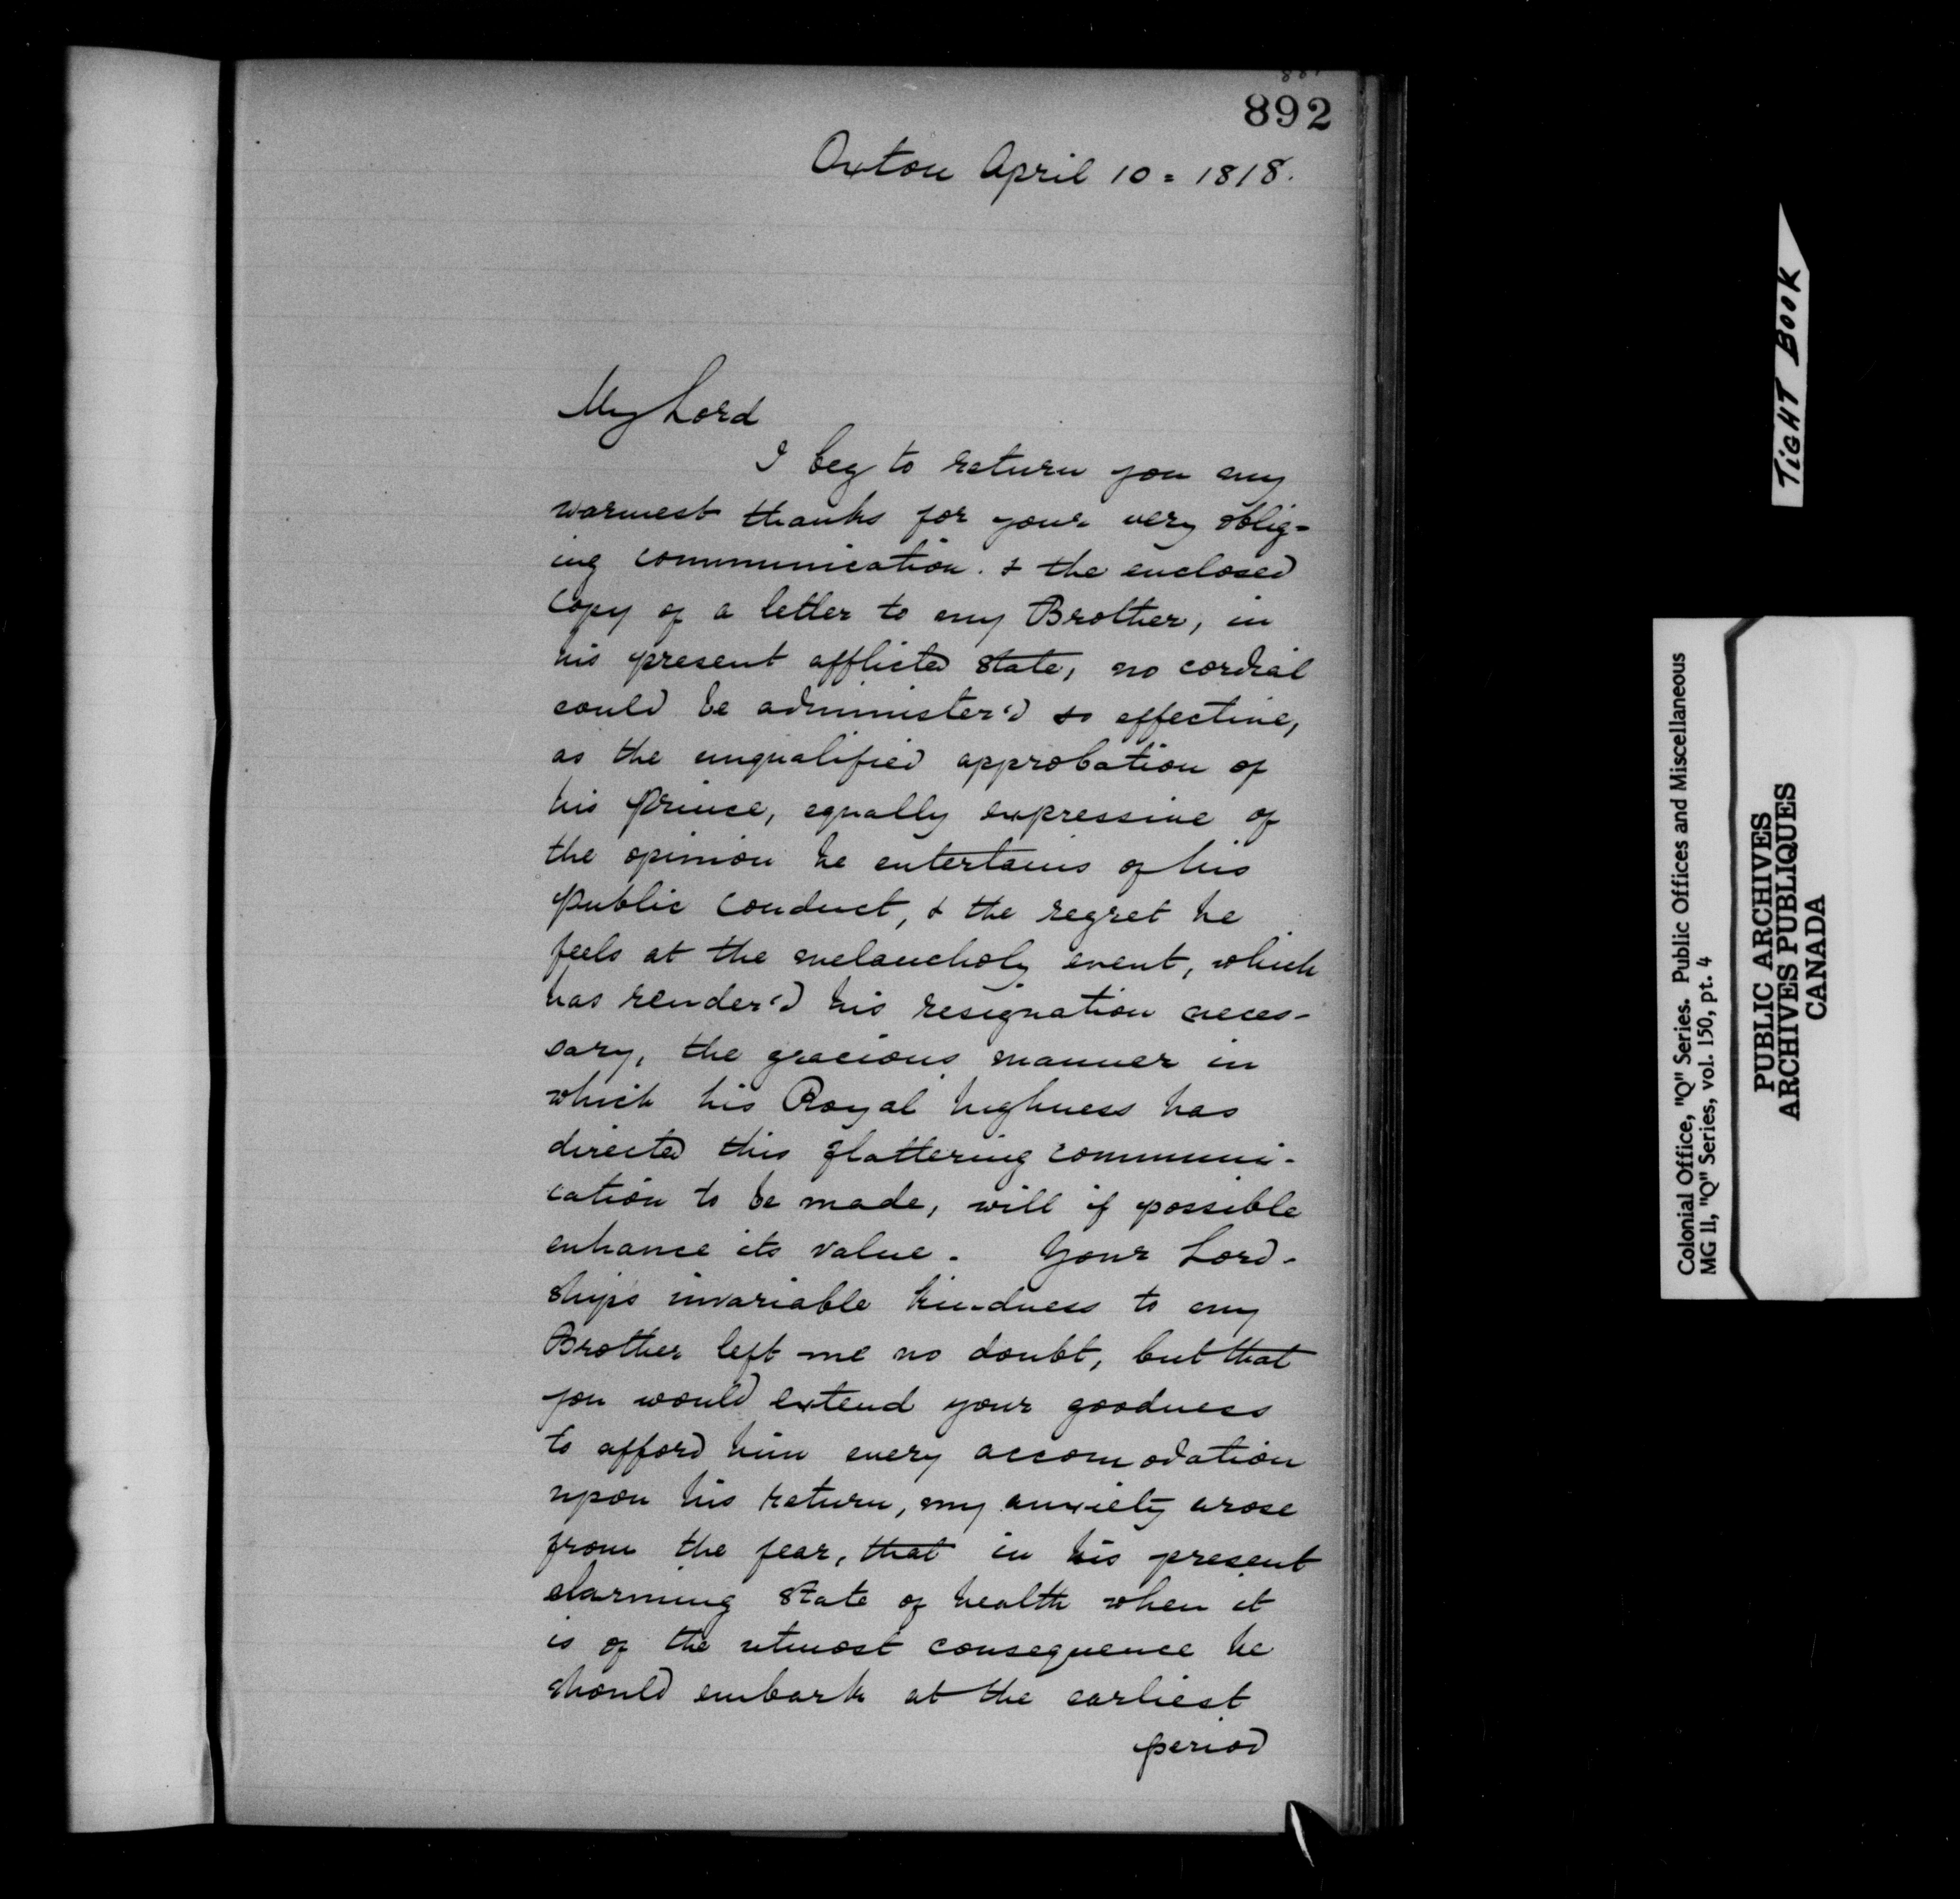 892
Oxton April 10 = 1818.
My Lord
I beg to return you my
warmest thanks for your very oblig=
ing communication. & the enclosed
Copy of a letter to my Brother, in
his present afflicted state, no cordial
could be administer'd so effective,
as the unqualified approbation of
his Prince, equally expressive of
the opinion he entertains of his
public conduct, & the regret he
feels at the melancholy event, which
has render'd his resignation neces-
sary, the gracious manner in
which his Royal highness has
directed this flattering communi-
cation to be made, will if possible
enhance its value. Your Lord-
ships invariable kindness to my
Brother left me no doubt, but that
you would extend your goodness
to afford him every accomodation
upon his return, my anxiety arose
from the fear, that in his present
alarming state of health when it
is of the utmost consequence he
should embark at the earliest
period
TIGHT BOOK
Colonial Office, "Q" Series. Public Offices and Miscellaneous
MG 11, "Q" Series, vol. 150, pt. 4
PUBLIC ARCHIVES
ARCHIVES PUBLIQUES
CANADA